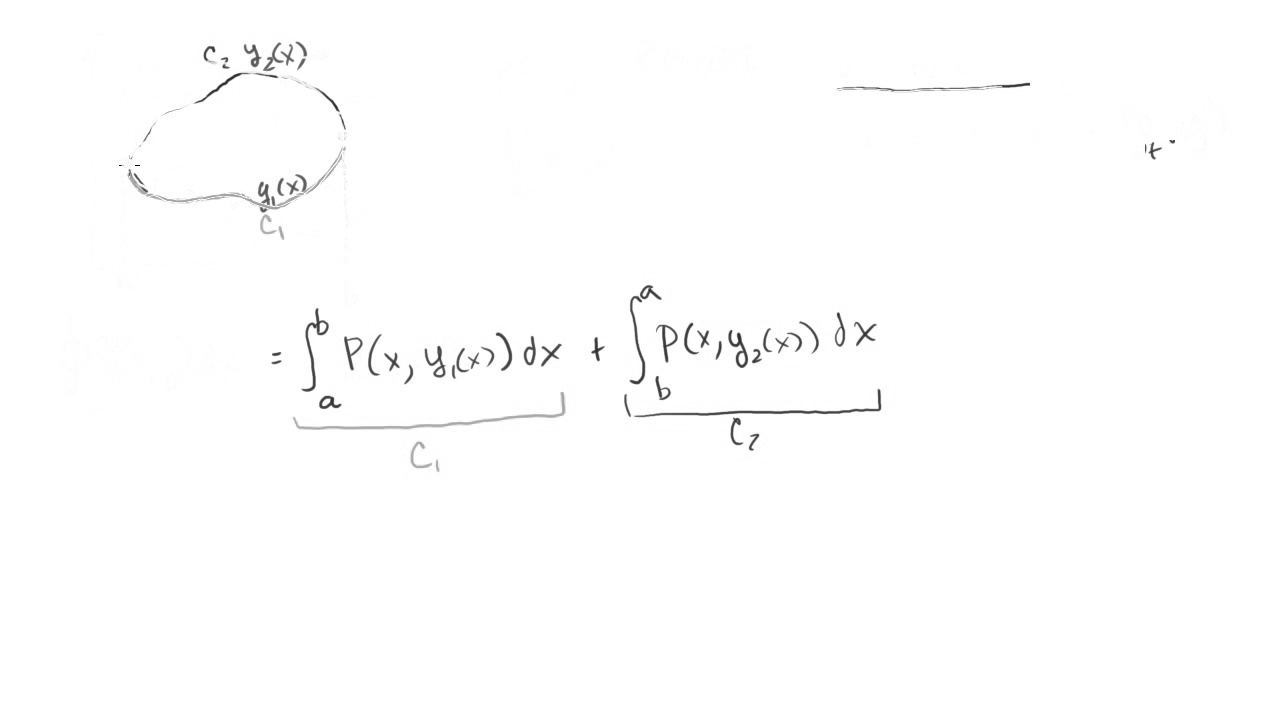 C₂ y₂(x)
y₁(x)
C₁
= ∫ₐᵇ P(x, y₁(x)) dx + ∫_bᵃ P(x, y₂(x)) dx
C₁ C₂